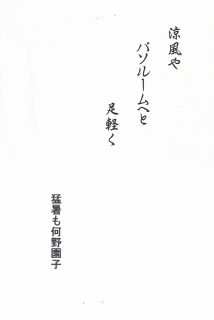 涼風や
バソルームへと
足軽く
猛暑も何野園子